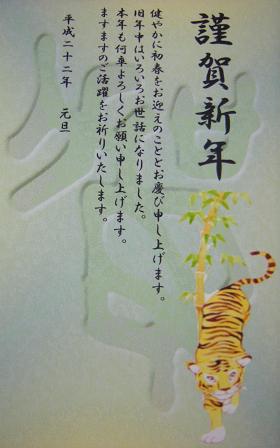 謹賀新年
健やかに初春をお迎えのこととお慶び申し上げます。
旧年中はいろいろお世話になりました。
本年も何卒よろしくお願い申し上げます。
ますますのご活躍をお祈りいたします。
平成二十二年 元旦